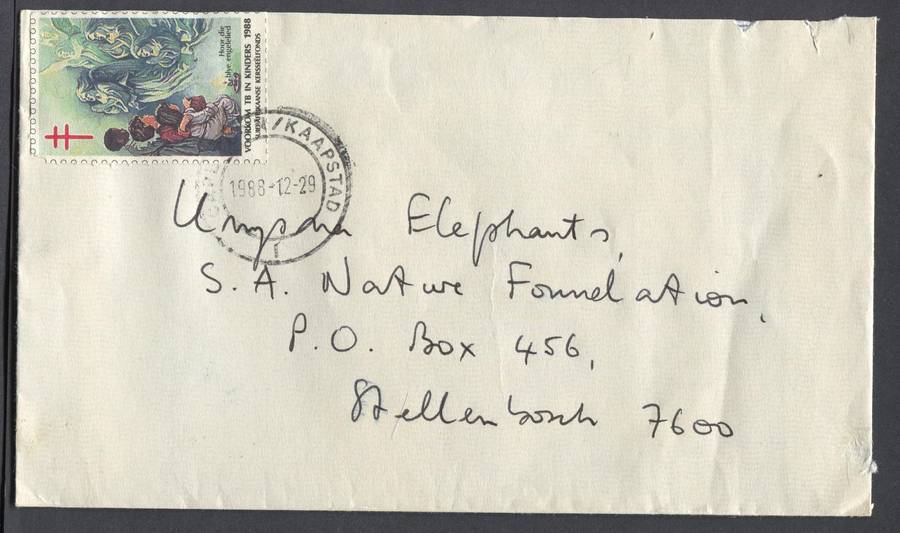 Hoor die
blye engelelied
VOORKOM TB IN KINDERS 1988
SUID-AFRIKAANSE KERSSEËLFONDS
/KAAPSTAD
1988-12-29
Elephants,
S.A. Nature Foundation,
P.O. Box 456,
Stellenbosch 7600